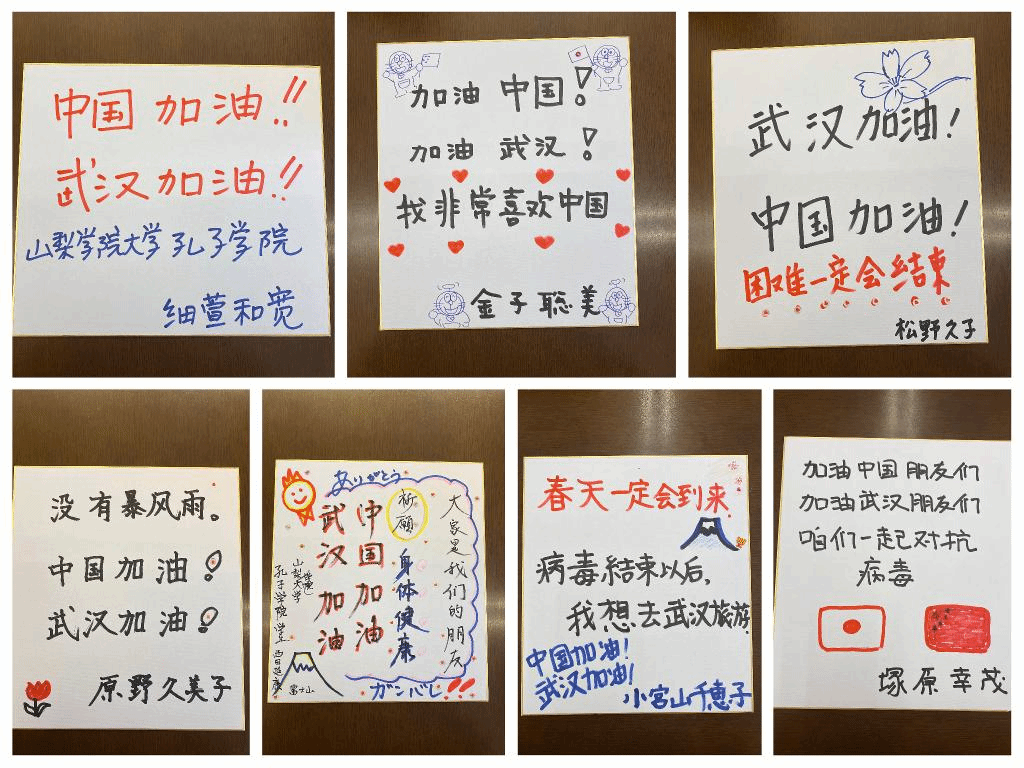 中国加油!!
武汉加油!!
山梨学院大学孔子学院
细萱和宽
加油中国!
加油武汉!
我非常喜欢中国
金子聪美
武汉加油!
中国加油!
困难一定会结束
松野久子
没有暴风雨。
中国加油!
武汉加油!
原野久美子
ありがとう
大家是我们的朋友
祈願
身体健康
中国加油
武汉加油
山梨大学
学院
孔子学院堂
富士山
ガンバレ!!
春天一定会到来
病毒结束以后,
我想去武汉旅游
中国加油!
武汉加油!
小宫山千恵子
加油中国朋友们
加油武汉朋友们
咱们一起对抗
病毒
塚原幸茂